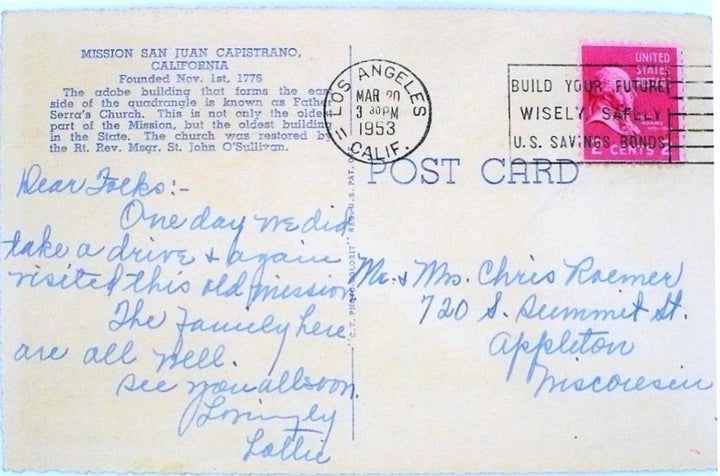 MISSION SAN JUAN CAPISTRANO,
CALIFORNIA
Founded Nov. 1st, 1776
The adobe building that forms the east
side of the quadrangle is known as Father
Serra's Church. This is not only the oldest
part of the Mission, but the oldest building
in the State. The church was restored by
the Rt. Rev. Msgr. St. John O'Sullivan.
Dear Folks:-
One day we did
take a drive & again
visited this old mission
The family here
are all well.
See you all soon.
Lovingly
Lottie
LOS ANGELES
MAR 20
3 30 PM
1953
CALIF.
11
BUILD YOUR FUTURE
WISELY SAFELY
U.S. SAVINGS BONDS
UNITED
STATES
POSTAGE
2 CENTS 2
POST CARD
Mr. & Mrs. Chris Roemer
720 S. Summit St.
Appleton
Wisconsin
"C.T. PHOTO-COLORIT" REG. U.S. PAT. OFF.